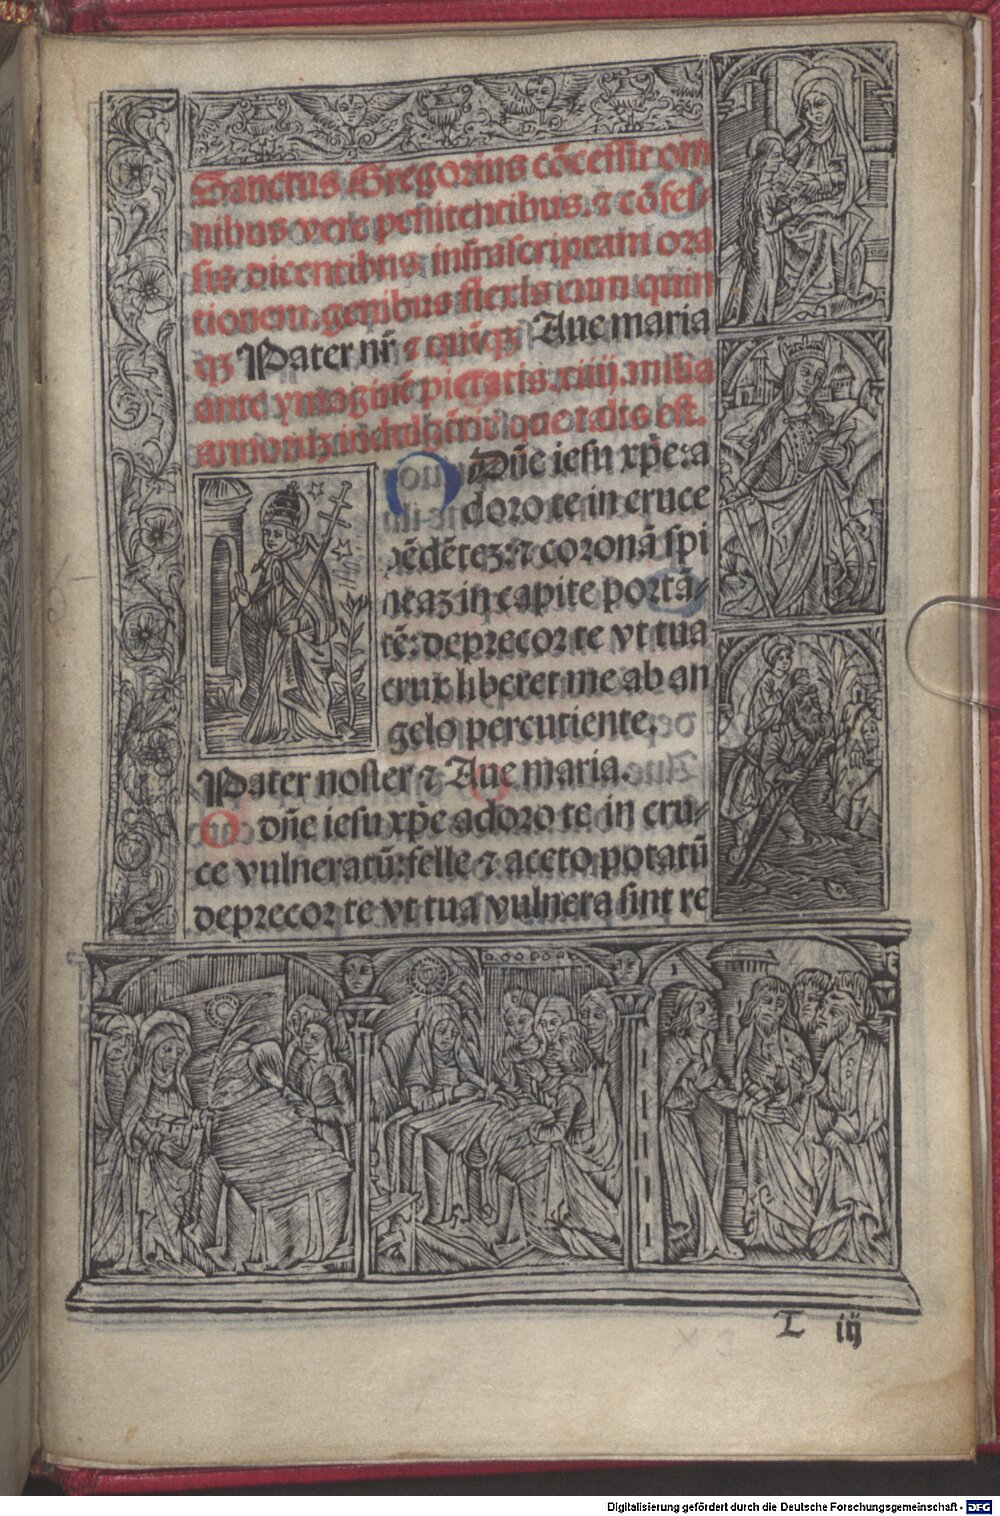 Sanctus Gregorius cōcessit om
nibus vere penitentibus. ⁊ cōfes-
sis dicentibus infrascriptam ora
tionem. genibus flexis cum quin
qꝫ Pater nr̄ ⁊ quīqꝫ Aue maria
ante ymaginē pietatis. xiiii. milia
annorū indulgētie que talis est.
O Dñe iesu xp̄e: a
doro te in cruce
pēdēteꝫ: ⁊ coronā spi
neaꝫ in capite portā-
tē: deprecor te vt tua
crux liberet me ab an
gelo percutiente.
Pater noster ⁊ Aue maria.
O dñe iesu xp̄e adoro te in cru-
ce vulneratū: felle ⁊ aceto potatū
deprecor te vt tua vulnera sint re
L iij
Digitalisierung gefördert durch die Deutsche Forschungsgemeinschaft - DFG